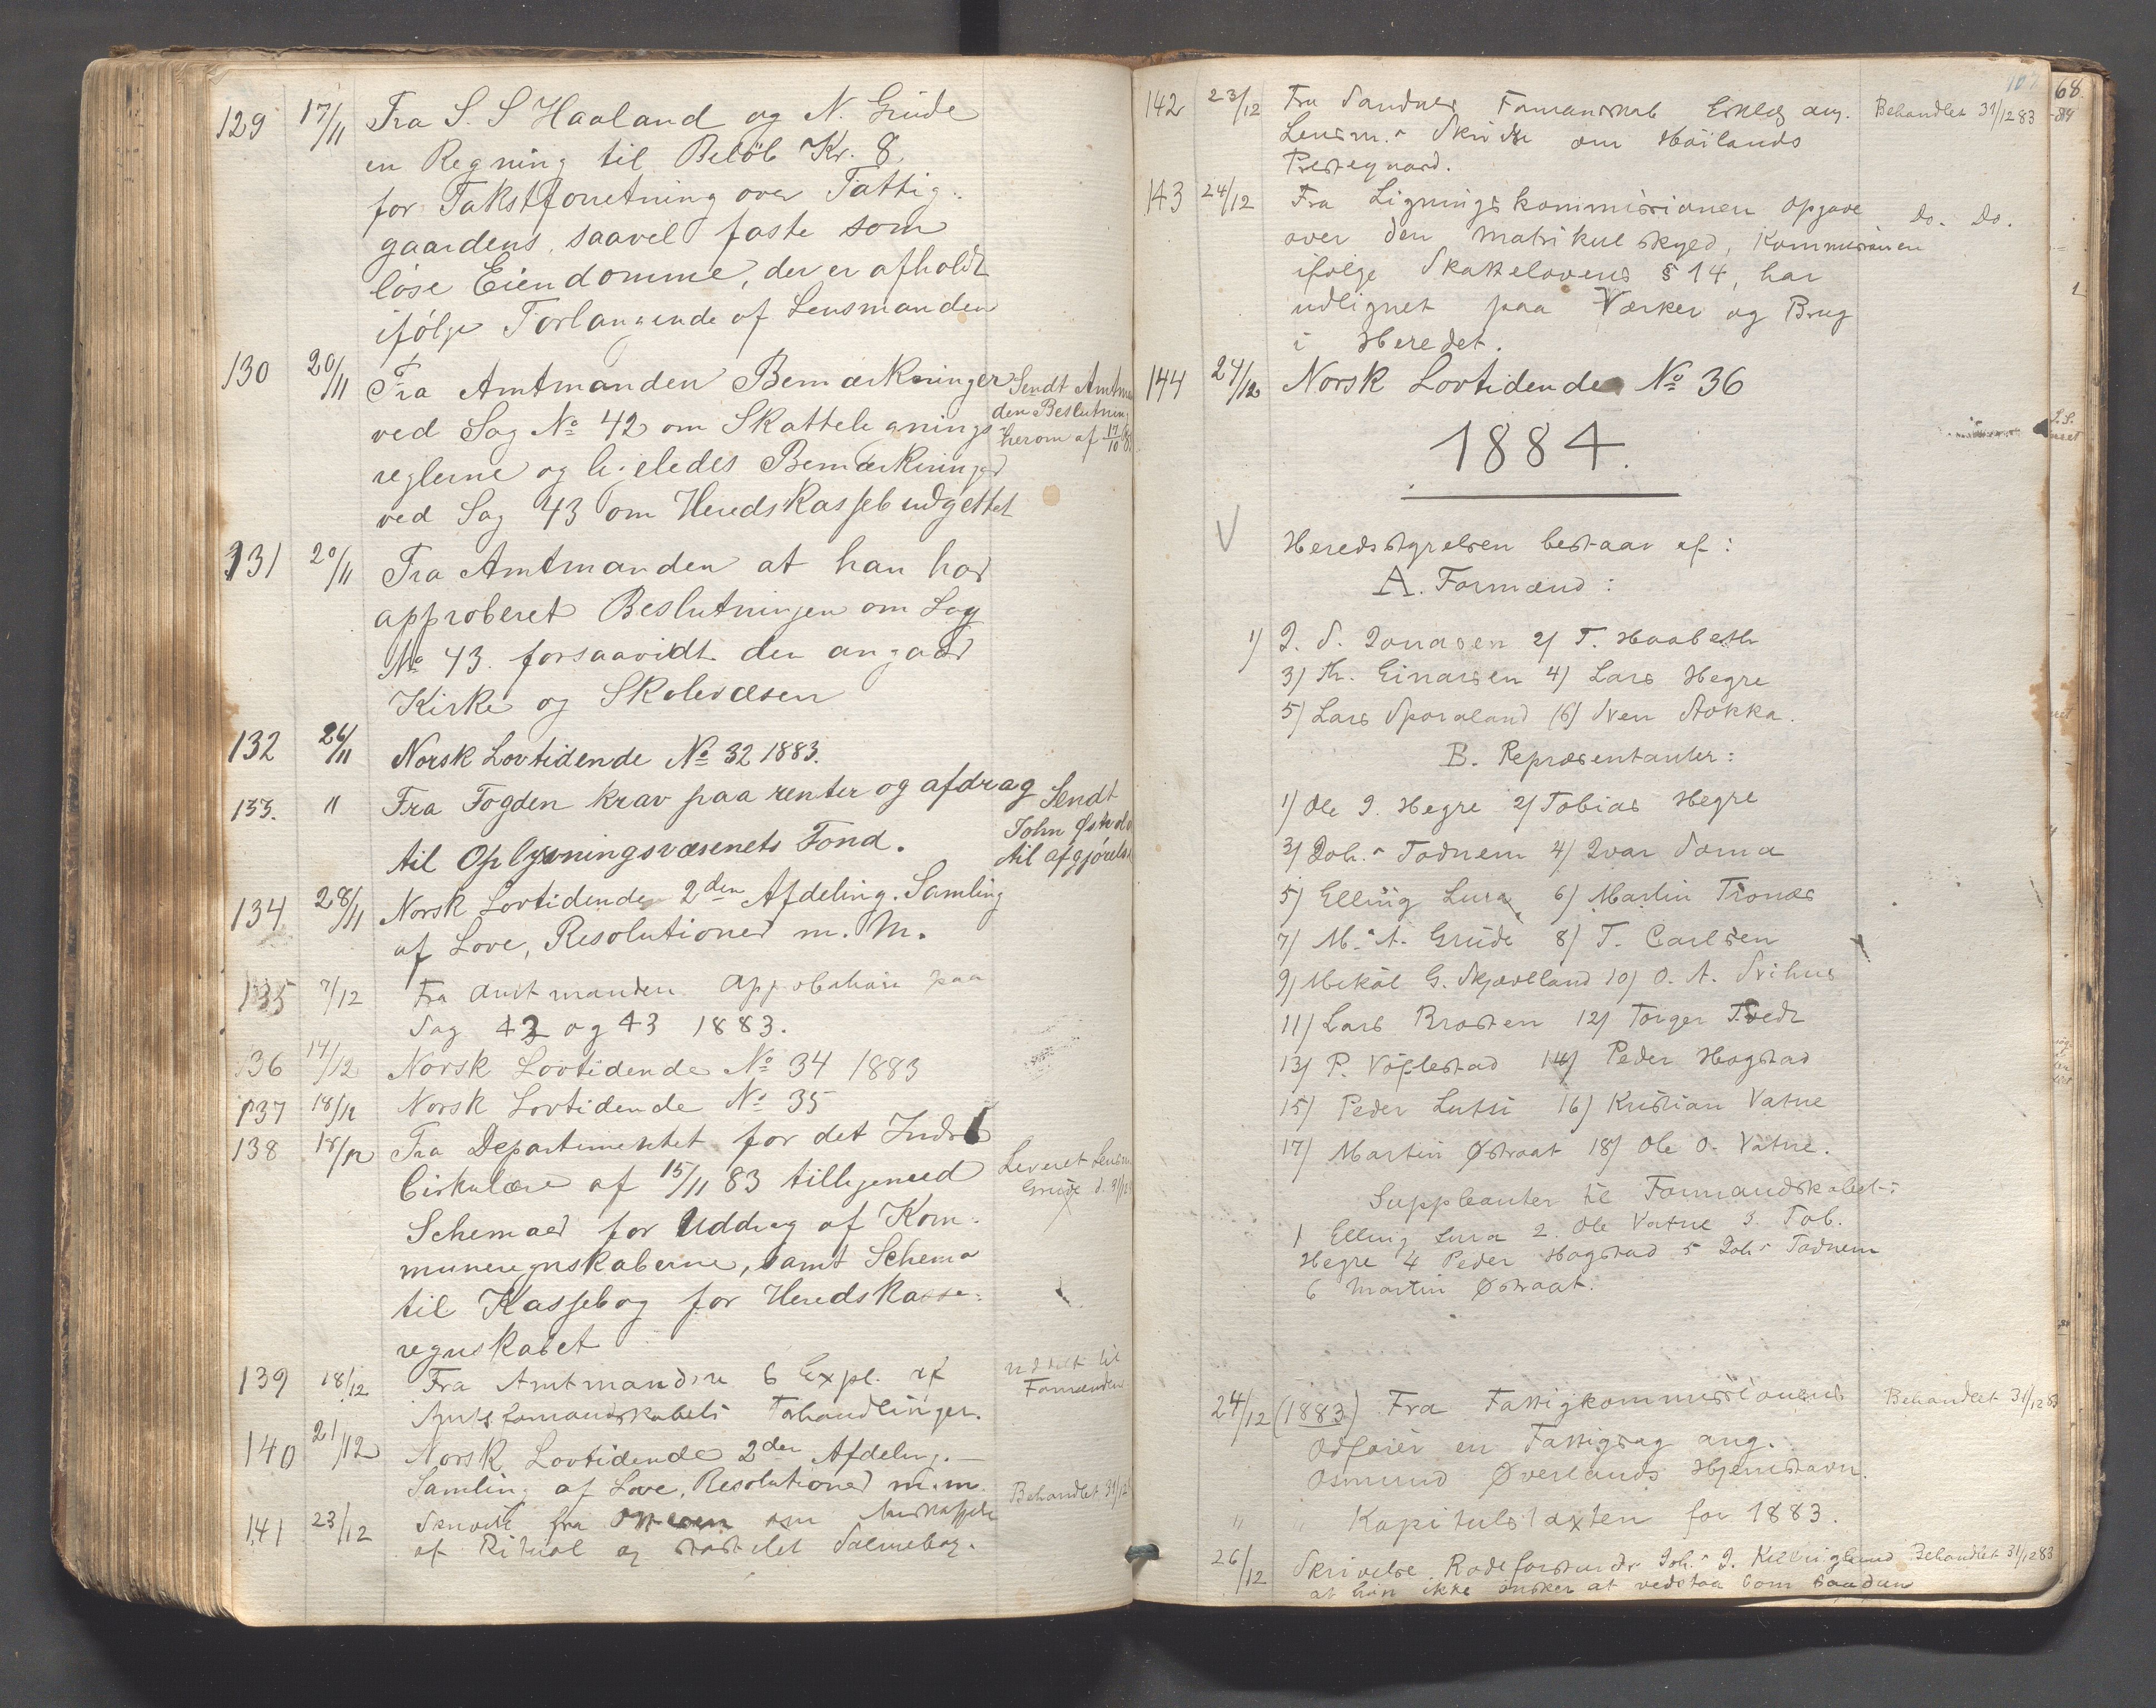 129 17/11 Fra S. S Haaland og N. Grude
en Regning til Beløb Kr. 8
for Takstforretning over Fattig-
gaardens, saavel faste som
løse Eiendomme, der er afholdt
ifølge Forlangende af Lensmanden
130 20/11 Fra Amtmanden Bemærkninger
ved Sag No 42 om Skattelignings-
reglerne og ligeledes Bemærkninger
ved Sag 43 om Heredskassebudgettet
Sendt Amtman
den Beslutning
herom af 17/10
131 20/11 Fra Amtmanden at han har
approberet Beslutningen om Sag
No 43. forsaavidt den angaar
Kirke og Skolevæsen
132 26/11 Norsk Lovtidende No 32 1883.
133. " Fra Fogden krav paa renter og afdrag
til Oplysningsvæsenets Fond.
Sendt
John
til afgjørelse
134 28/11 Norsk Lovtidende 2den Afdeling. Samling
af Love, Resolutioner m. M.
135 7/12 Fra Amtmanden Approbation paa
Sag 42 og 43 1883.
136 14/12 Norsk Lovtidende No 34 1883
137 18/12 Norsk Lovtidende No 35
138 18/12 Fra Departimentet for det Indre
Cirkulære af 15/11 83 tilligemed
Schemaer for Uddrag af Kom-
muneregnskaberne, samt Schema
til Kassebog for Heredskasse-
regnskabet
Leveret Lensm
Grude d.
139 18/12 Fra Amtmanden 6 Expl. af
Amtsformandskabets Forhandlinger.
Uddelt til
Formænden
140 21/12 Norsk Lovtidende 2den Afdeling.-
Samling af Love, Resolutioner m.m.
141 23/12 Skrivelse fra om
af Ritual og Salmebog.
Behandlet 31/12
107
142 23/12 Fra Sandnes Formanskab Erklg ang.
Lensm.s Skridt om Høilands
Prestegaard.
Behandlet 31/12 83
143 24/12 Fra Ligningskommissionen Opgave
over den Matrikulskyld, Kommissionen
ifølge Skattelovens § 14, har
udlignet paa Værker og Brug
i Heredet.
Do. Do.
144 24/12 Norsk Lovtidende No 36
1884.
V Heredsstyrelsen bestaar af:
A. Formænd:
1) J. S. Jonasen 2) T. Haabeth
3) Th. Einarsen 4) Lars Hegre
5) Lars Sporaland (6) Sven Stokka.
B. Repræsentanter:
1) Ole J. Hegre 2) Tobias Hegre
3) Joh.s Todnem 4) Ivar Soma
5) Elling Lura 6) Martin Trones
7) M. A. Grude 8) T. Carlsen
9) Mikal G. Skjæveland 10) O. A. Svihus
11) Lars Brosten 12) Torger Tvedt
13) P. Vøplestad 14) Peder Hogstad
15) Peder Lutsi 16) Kristian Vatne
17) Martin Østraat 18) Ole O. Vatne.
Suppleanter til Formandskabet:
1 Elling Lura 2. Ole Vatne 3. Tob.
Hegre 4 Peder Hogstad 5 Joh.s Todnem
6 Martin Østraat.
24/12 (1883) Fra Fattigkommissionens
Ordfører en Fattigsag ang.
Osmund Øverlands Hjemstavn.
Behandlet 31/12 83
" " Kapitulstaxten for 1883.
26/12 Skrivelse Rodeforstander Joh.s J.
at han ikke ønsker at vedstaa som saadan
Behandlet 31/12 83
68.